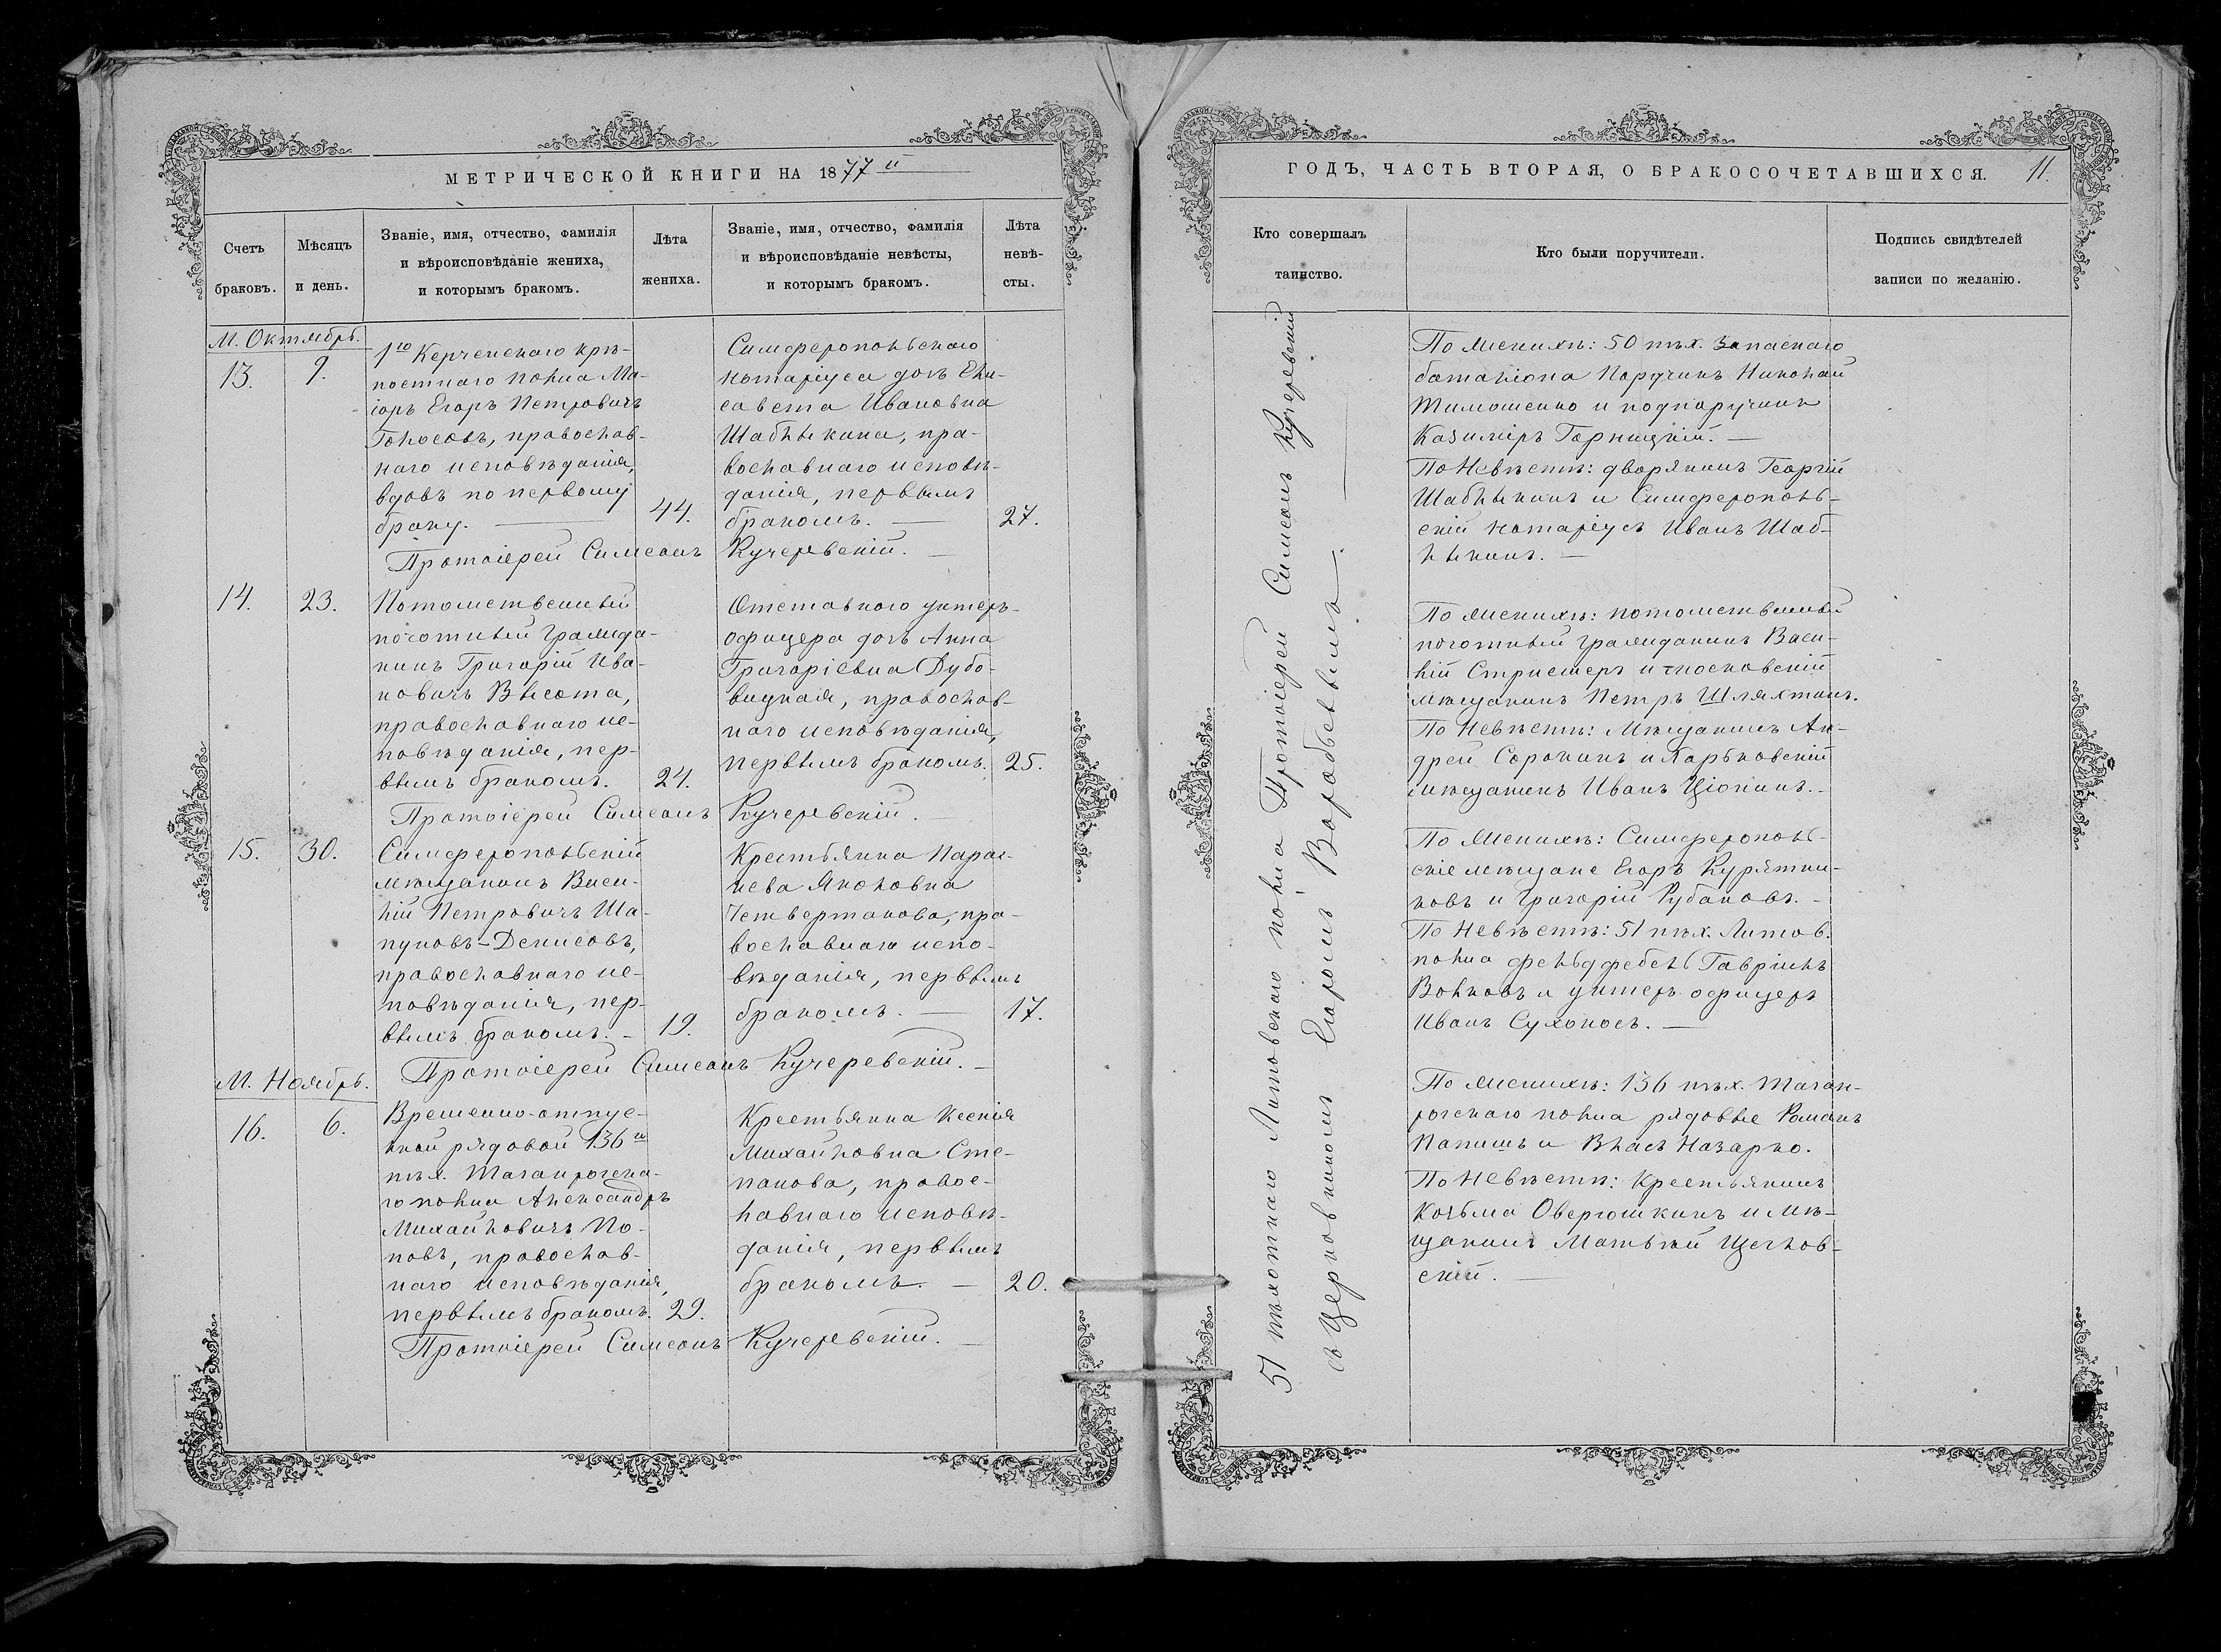 МЕТРИЧЕСКОЙ КНИГИ НА 1877й
Счетъ
браковъ.
Мѣсяцъ
и день.
Званіе, имя, отчество, фамилія
и вѣроисповѣданіе жениха,
и которымъ бракомъ.
Лѣта
жениха.
Званіе, имя, отчество, фамилія
и вѣроисповѣданіе невѣсты,
и которымъ бракомъ.
Лѣта
невѣ-
сты.
М. Октябрь.
13.
9.
1го Керченскаго крѣ-
постнаго полка Ма-
іоръ Егоръ Петровичъ
Голосовъ, православ-
наго исповѣданія,
вдовъ по первому
браку.
44.
Симферопольскаго
нотаріуса дочь Ели-
савета Ивановна
Шаблыкина, пра-
вославнаго исповѣ-
данія, первымъ
бракомъ.
27.
Протоіерей Симеонъ Кучеревскій.
14.
23.
Потомственный
почотный гражда-
нинъ Григорій Ива-
новичъ Высота,
православнаго ис-
повѣданія, пер-
вымъ бракомъ.
24.
Отставного унтеръ-
офицера дочь Анна
Григоріевна Дубо-
вицкая, православ-
наго исповѣданія,
первымъ бракомъ.
25.
Протоіерей Симеонъ Кучеревскій.
15.
30.
Симферопольскій
мѣщанинъ Васи-
лій Петровичъ Ша-
пуновъ-Денисовъ,
православнаго ис-
повѣданія, пер-
вымъ бракомъ.
19.
Крестьянка Парас-
кева Яковлевна
Четвертакова, пра-
вославнаго испо-
вѣданія, первымъ
бракомъ.
17.
Протоіерей Симеонъ Кучеревскій.
М. Ноябрь.
16.
6.
Временно-отпус-
кной рядовой 136го
пѣх. Таганрогска-
го полка Александръ
Михайловичъ По-
повъ, православ-
наго исповѣданія,
первымъ бракомъ.
29.
Крестьянка Ксенія
Михайловна Сте-
панова, правос-
лавнаго исповѣ-
данія, первымъ
бракомъ.
20.
Протоіерей Симеонъ Кучеревскій.
ГОДЪ, ЧАСТЬ ВТОРАЯ, О БРАКОСОЧЕТАВШИХСЯ.
11.
Кто совершалъ
таинство.
Кто были поручители.
Подпись свидѣтелей
записи по желанію.
51 пѣхотнаго Литовскаго полка Протоіерей Симеонъ Кучеревскій
съ Церковникомъ Егоромъ Воробьевымъ.
По женихѣ: 50 пѣх. запаснаго
баталіона Поручикъ Николай
Тимошенко и подпоручикъ
Казиміръ Горницкій.
По Невѣстѣ: дворянинъ Георгій
Шаблыкинъ и Симферополь-
скій нотаріусъ Иванъ Шаб-
лыкинъ.
По женихѣ: потомственный
почотный гражданинъ Васи-
лій Стрисшеръ и московскій
мѣщанинъ Петръ Шляхтинъ.
По Невѣстѣ: Мѣщанинъ Ан-
дрей Сорокинъ и Харьковскій
мѣщанинъ Иванъ Ціопинъ.
По Женихѣ: Симферополь-
скіе мѣщане Егоръ Курятни-
ковъ и Григорій Рубановъ.
По Невѣстѣ: 51 пѣх. Литов.
полка фельдфебель Гавріилъ
Волковъ и унтеръ-офицеръ
Иванъ Сухоносъ.
По женихѣ: 136 пѣх. Таган-
рогскаго полка рядовые Романъ
Папишъ и Власъ Назарко.
По Невѣстѣ: Крестьянинъ
Козьма Овергошкинъ и мѣ-
щанинъ Матвѣй Щегллов-
скій.